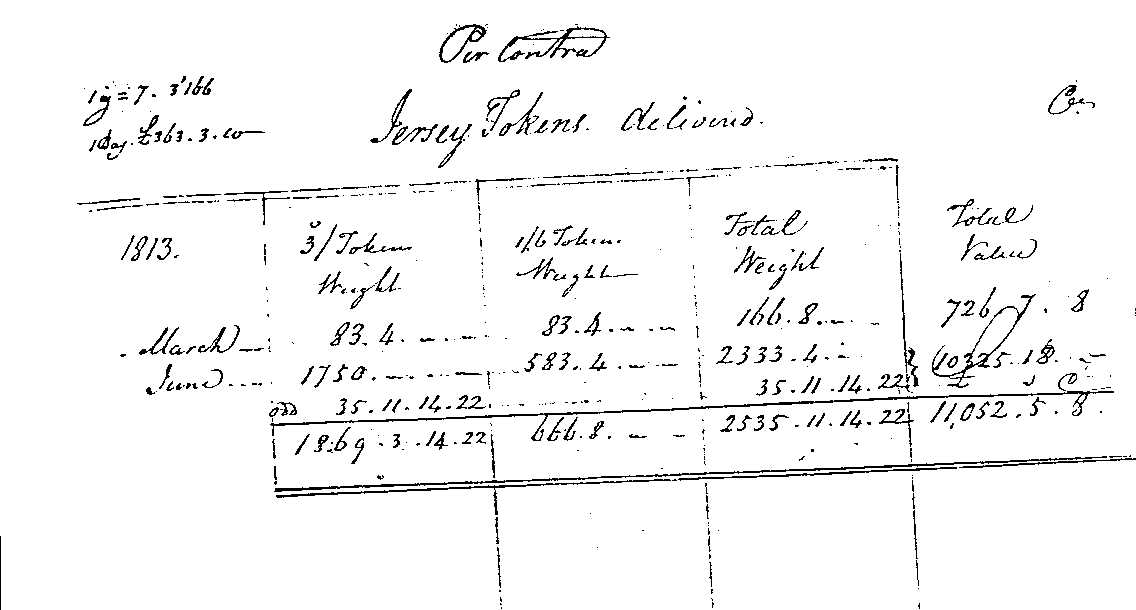 Per Contra
1 = 7. 3'166
Jersey Tokens. deliverd.
Cr
1 Bag. £363.3.10
1813.
3/ Token Weight
1/6 Token Weight
Total Weight
Total Value
March 83.4. 83.4. 166.8. 726.7.8
June 1750. 583.4. 2333.4. 10325.18.
odd 35.11.14.22 35.11.14.22
£ s d
1869.3.14.22 666.8. 2535.11.14.22 11,052.5.8.